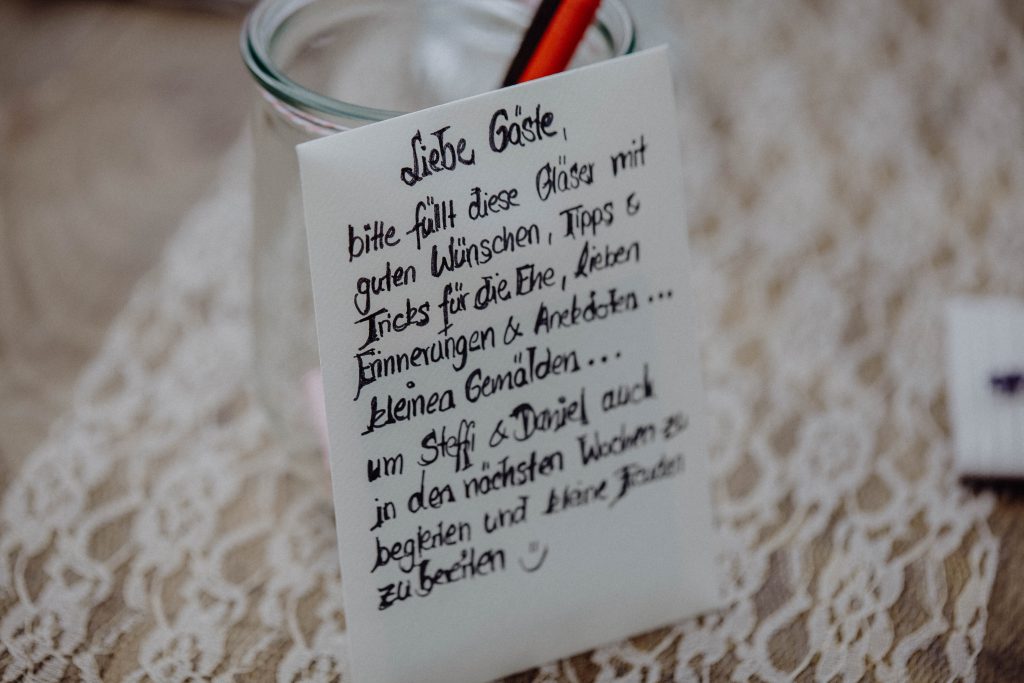 Liebe Gäste,
bitte füllt diese Gläser mit
guten Wünschen, Tipps &
Tricks für die Ehe, lieben
Erinnerungen & Anekdoten...
kleinen Gemälden...
um Steffi & Daniel auch
in den nächsten Wochen zu
begleiten und kleine Freuden
zu bereiten :)